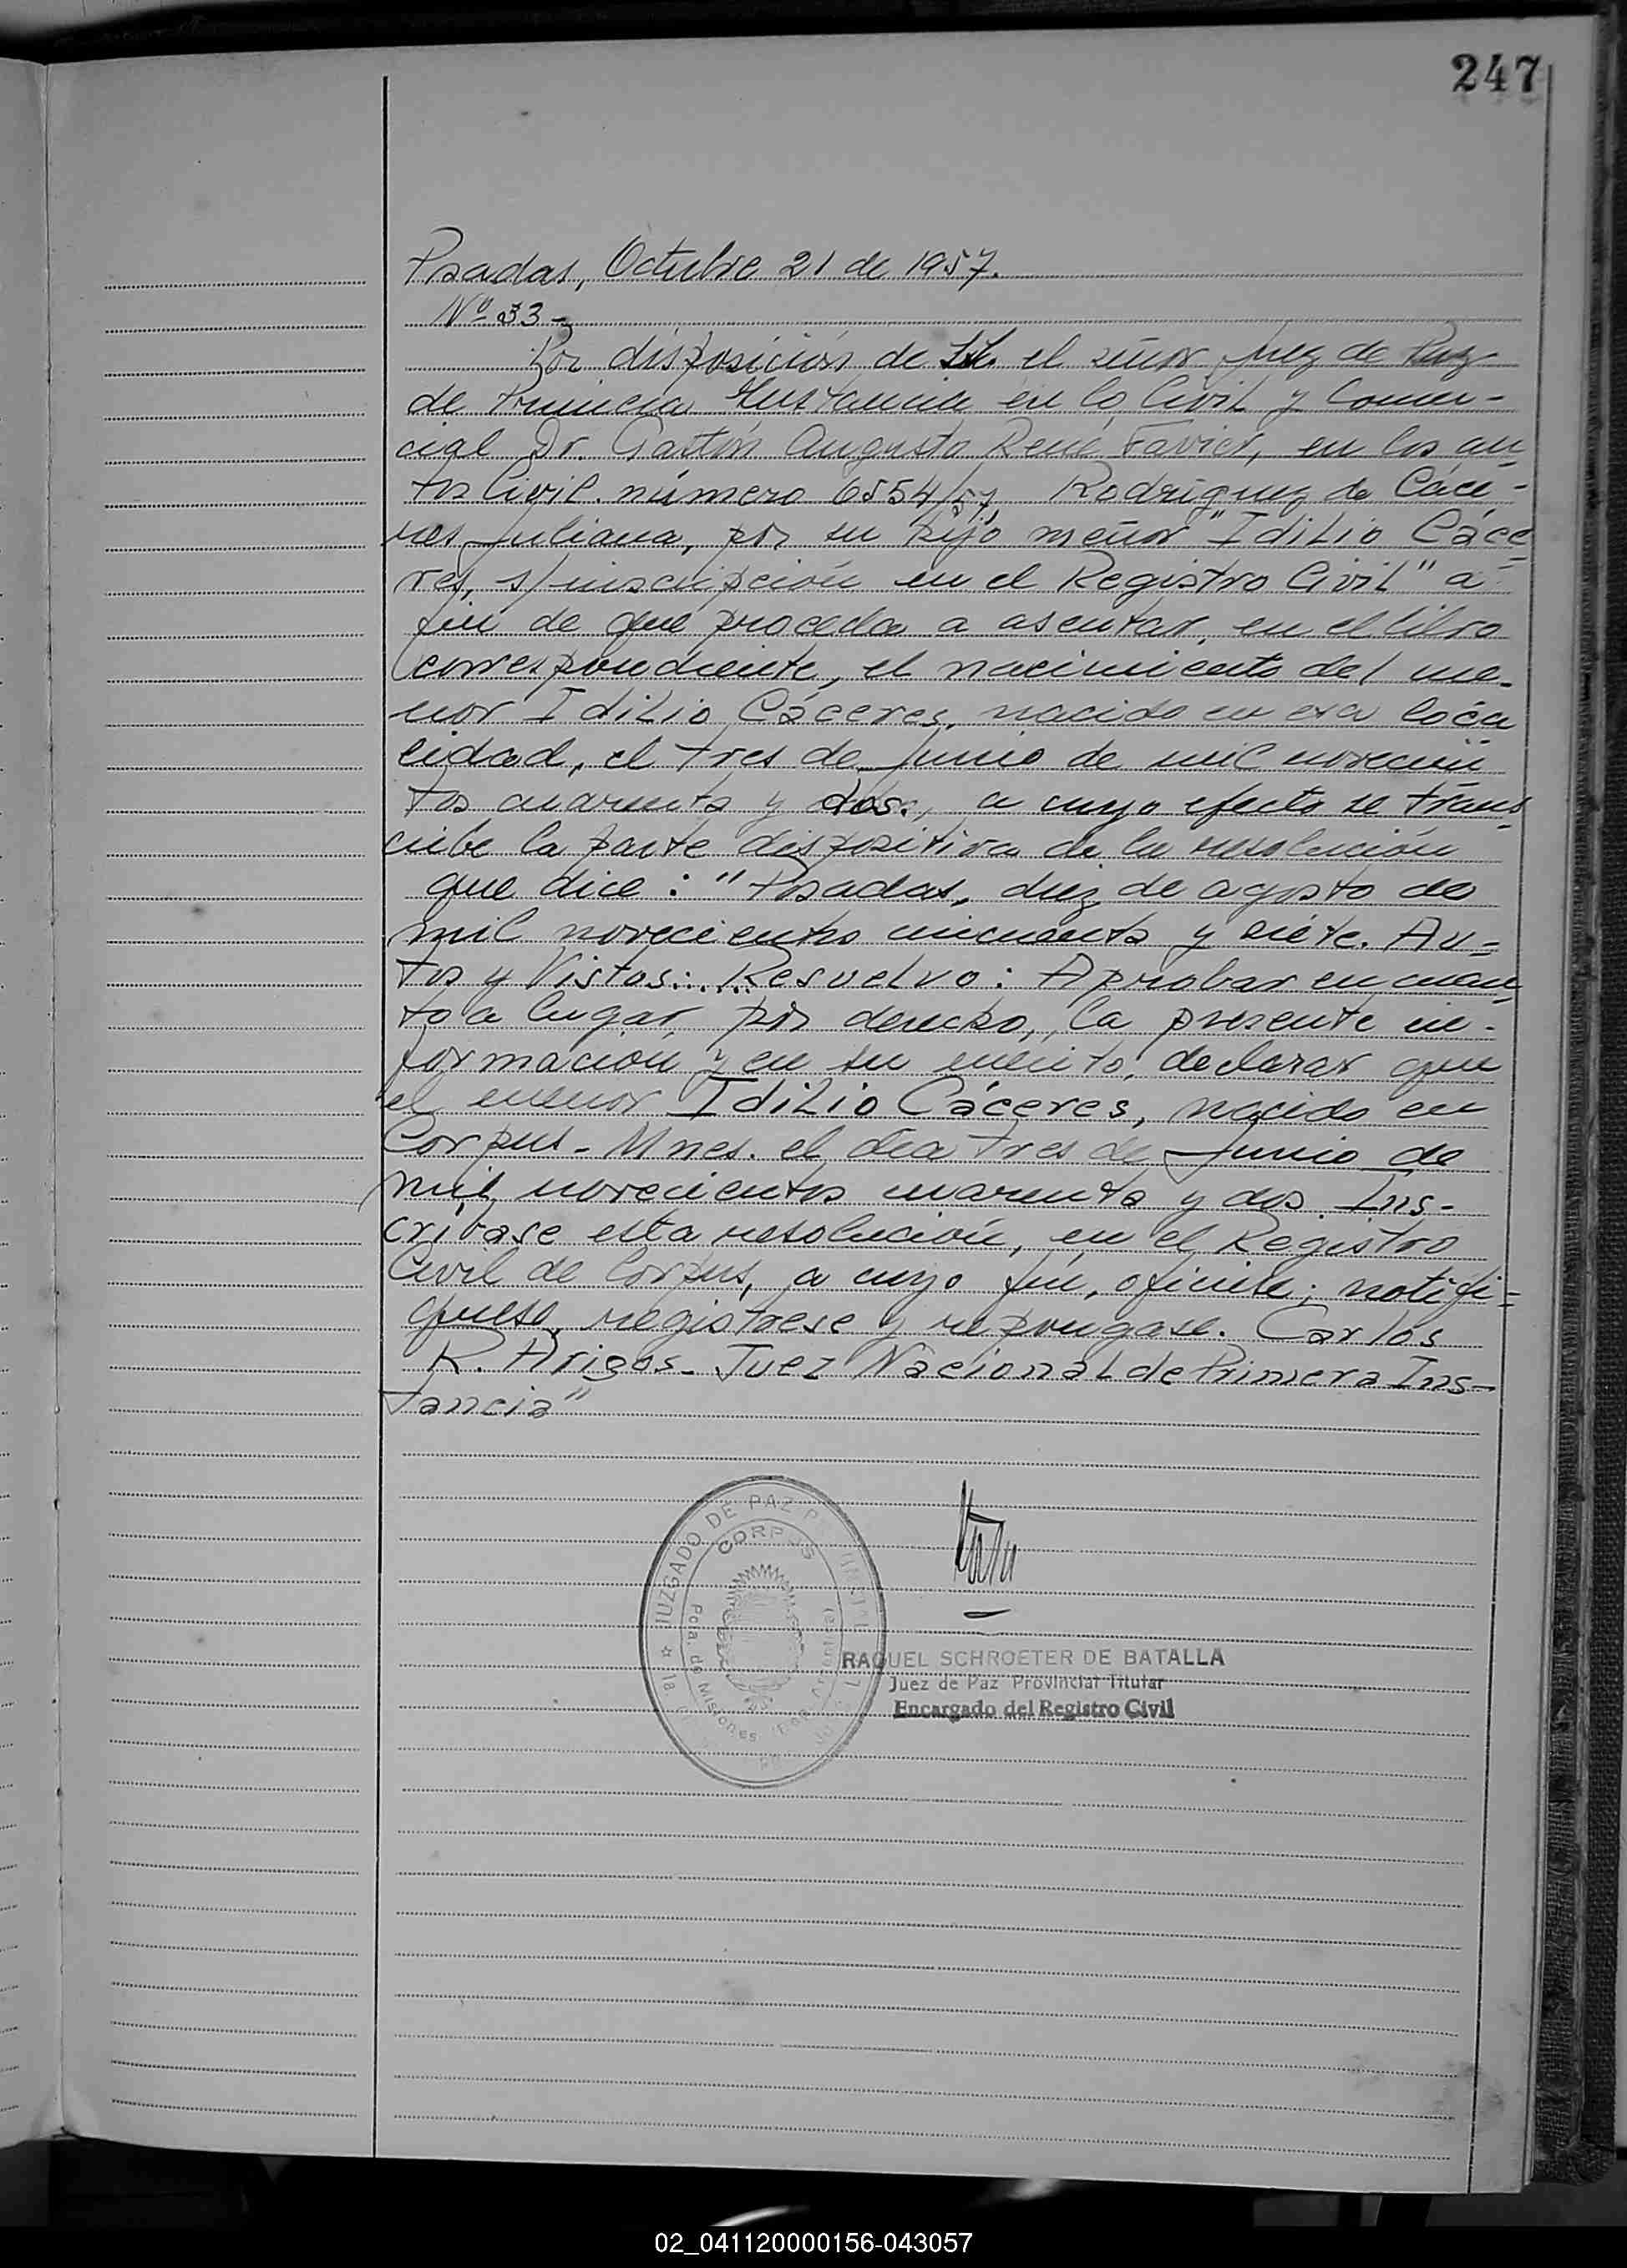 247
Posadas, Octubre 21 de 1957.
Nº 33-
Por disposición de S.S. el señor Juez de Paz
de Primera Instancia en lo Civil y Comer-
cial Dr. Gastón Augusto René Favier, en los au
tos Civil. número 6554/57, Rodríguez de Cáce-
res Juliana, por su hijo menor "Idilio Cáce
res, s/inscripción en el Registro Civil" a
fin de que proceda a asentar, en el libro
correspondiente, el nacimiento del me-
nor Idilio Cáceres, nacido en esa loca
lidad, el tres de Junio de mil novecien
tos cuarenta y dos., a cuyo efecto se trans
cribe la parte dispositiva de la resolución
que dice: "Posadas, diez de agosto de
mil novecientos cincuenta y siete. Au-
tos y Vistos:.....Resuelvo: Aprobar en cuan
to a lugar por derecho, la presente in-
formación y en su mérito, declarar que
el menor Idilio Cáceres, nacido en
Corpus - Mnes. el día tres de Junio de
mil novecientos cuarenta y dos. Ins-
críbase esta resolución, en el Registro
Civil de Corpus, a cuyo fin, ofíciese; notifí-
quese, regístrese y repóngase. Carlos
R. Arigós - Juez Nacional de Primera Ins-
tancia"
JUZGADO DE PAZ
CORPUS
Pcia. de Misiones
RAQUEL SCHROETER DE BATALLA
Juez de Paz Provincial Titular
Encargado del Registro Civil
02_041120000156-043057